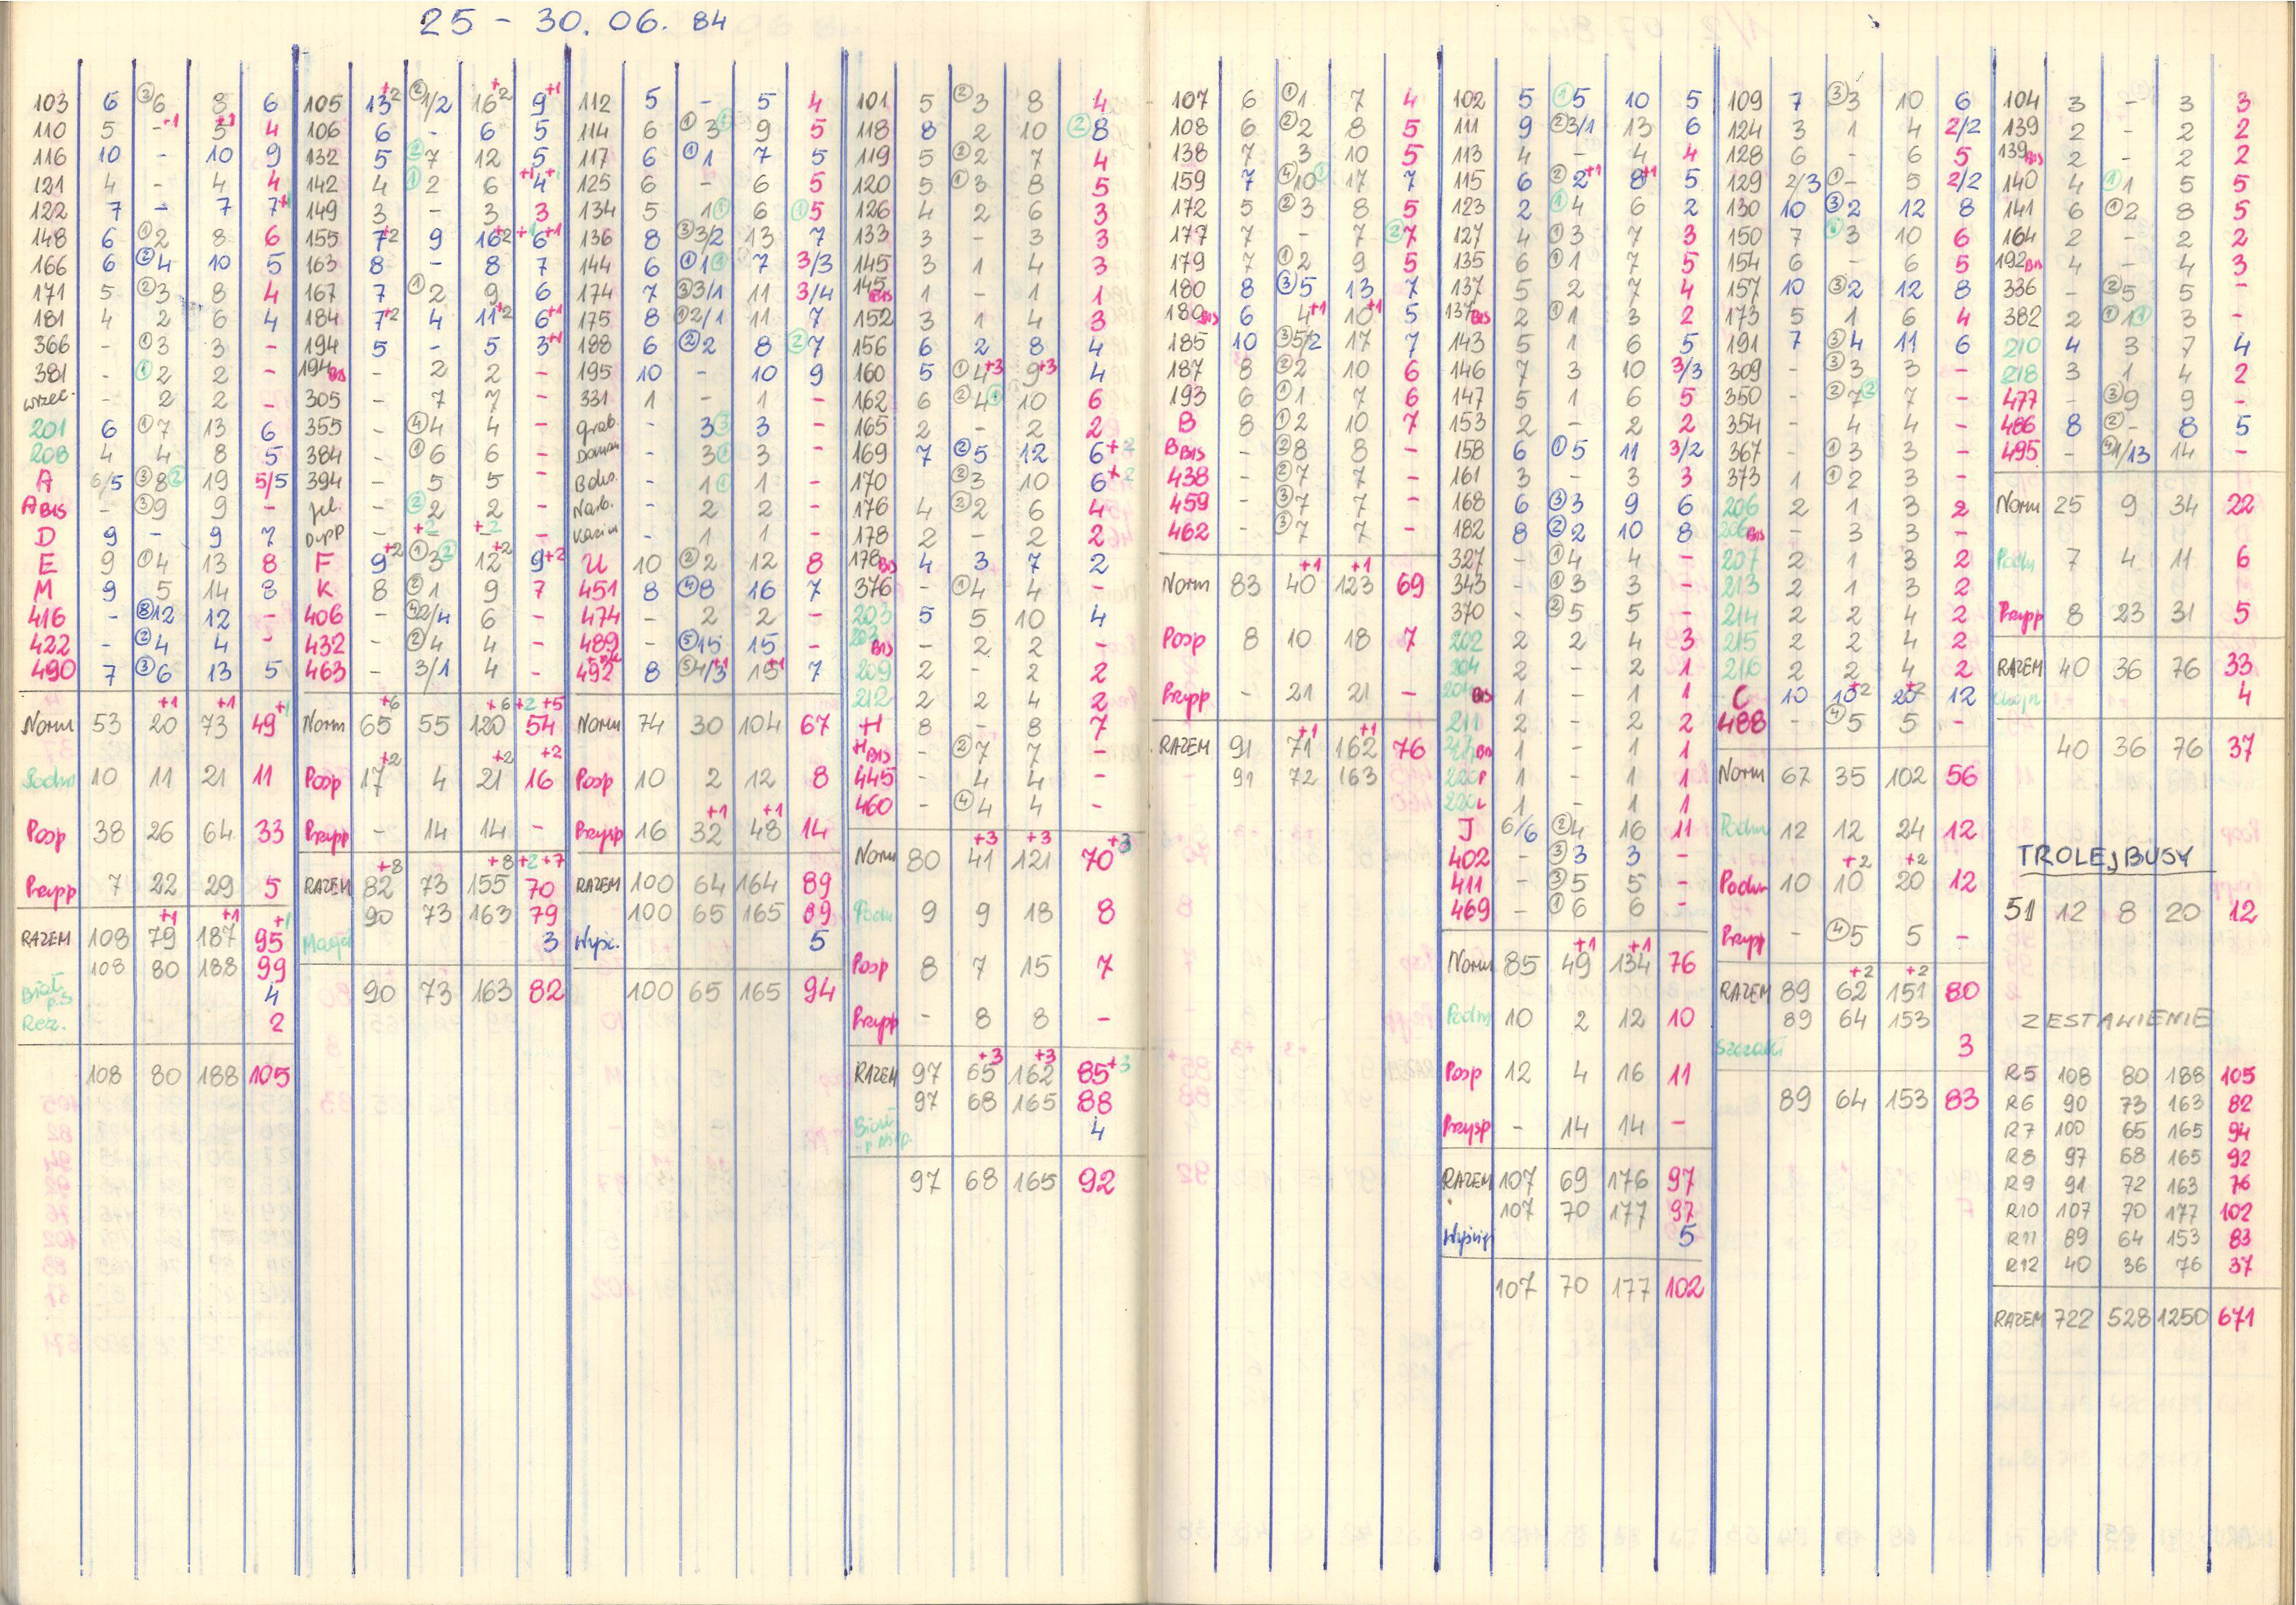 25 - 30. 06. 84
103 6 ③6 8 6
110 5 -+1 5+1 4
116 10 - 10 9
121 4 - 4 4
122 7 - 7 7+1
148 6 ①2 8 6
166 6 ②4 10 5
171 5 ②3 8 4
181 4 2 6 4
366 - ①3 3 -
381 - ①2 2 -
wrzec. - 2 2 -
201 6 ①7 13 6
208 4 4 8 5
A 6/5 ③8② 19 5/5
A BIS - ③9 9 -
D 9 - 9 7
E 9 ①4 13 8
M 9 5 14 8
416 - ⑧12 12 -
422 - ②4 4 -
490 7 ③6 13 5
Norm 53 20+1 73+1 49+1
Podm 10 11 21 11
Posp 38 26 64 33
Przysp 7 22 29 5
RAZEM 108 79+1 187+1 95+1
108 80 188 99
4
Rez. 2
108 80 188 105
105 13+2 ②1/2 16+2 9+1
106 6 - 6 5
132 5 ②7 12 5
142 4 ①2 6 4
149 3 - 3 3
155 7+2 9 16+2 6+1
163 8 - 8 7
167 7 ①2 9 6
184 7+2 4 11+2 6+1
194 5 - 5 3+1
194 BIS - 2 2 -
305 - 7 7 -
355 - ④4 4 -
384 - ①6 6 -
394 - 5 5 -
jel. - ②2 2 -
F 9+2 ①3② 12+2 9+2
K 8 ②1 9 7
406 - ④2/4 6 -
432 - ②4 4 -
463 - 3/1 4 -
Norm 65+6 55 120+6 54+2+5
Posp 17+2 4 21+2 16+2
Przysp - 14 14 -
RAZEM 82+8 73 155+8 70+2+7
90 73 163 79
3
90 73 163 82
112 5 - 5 4
114 6 ①3① 9 5
117 6 ①1 7 5
125 6 - 6 5
134 5 1① 6 ①5
136 8 ③3/2 13 7
144 6 ①1① 7 3/3
174 7 ③3/1 11 3/4
175 8 ①2/1 11 7
188 6 ②2 8 ②7
195 10 - 10 9
331 1 - 1 -
Grab. - 3③ 3 -
- 3① 3 -
- 1① 1 -
Narb. - 2 2 -
- 1 1 -
U 10 ②2 12 8
451 8 ④8 16 7
474 - 2 2 -
489 - ⑤15 15 -
492 8 ⑤4/3+1 15+1 7
Norm 74 30 104 67
Posp 10 2 12 8
Przysp 16 32+1 48+1 14
RAZEM 100 64 164 89
100 65 165 89
Wyśc. 5
100 65 165 94
101 5 ②3 8 4
118 8 2 10 ②8
119 5 ②2 7 4
120 5 ①3 8 5
126 4 2 6 3
133 3 - 3 3
145 3 1 4 3
145 BIS 1 - 1 1
152 3 1 4 3
156 6 2 8 4
160 5 ①4+3 9+3 4
162 6 ②4① 10 6
165 2 - 2 2
169 7 ②5 12 6+2
170 7 ③3 10 6+2
176 4 ②2 6 4
178 2 - 2 2
178 BIS 4 3 7 2
376 - ①4 4 -
203 5 5 10 4
203 BIS - 2 2 -
209 2 - 2 2
212 2 2 4 2
H 8 - 8 7
H BIS - ②7 7 -
445 - 4 4 -
460 - ④4 4 -
Norm 80 41+3 121+3 70+3
Podm 9 9 18 8
Posp 8 7 15 7
Przysp - 8 8 -
RAZEM 97 65+3 162+3 85+3
97 68 165 88
4
97 68 165 92
107 6 ①1 7 4
108 6 ②2 8 5
138 7 3 10 5
159 7 ④10① 17 7
172 5 ②3 8 5
177 7 - 7 ②7
179 7 ①2 9 5
180 8 ③5 13 7
180 BIS 6 4+1 10+1 5
185 10 ③5/2 17 7
187 8 ②2 10 6
193 6 ①1 7 6
B 8 ①2 10 7
B BIS - ②8 8 -
438 - ②7 7 -
459 - ③7 7 -
462 - ③7 7 -
Norm 83 40+1 123+1 69
Posp 8 10 18 7
Przysp - 21 21 -
RAZEM 91 71+1 162+1 76
91 72 163
102 5 ①5 10 5
111 9 ②3/1 13 6
113 4 - 4 4
115 6 ②2+1 8+1 5
123 2 ①4 6 2
127 4 ①3 7 3
135 6 ①1 7 5
137 5 2 7 4
137 BIS 2 ①1 3 2
143 5 1 6 5
146 7 3 10 3/3
147 5 1 6 5
153 2 - 2 2
158 6 ①5 11 3/2
161 3 - 3 3
168 6 ③3 9 6
182 8 ②2 10 8
327 - ①4 4 -
343 - ①3 3 -
370 - ②5 5 -
202 2 2 4 3
204 2 - 2 1
204 BIS 1 - 1 1
211 2 - 2 2
217 BIS 1 - 1 1
220P 1 - 1 1
220L 1 - 1 1
J 6/6 ②4 16 11
402 - ③3 3 -
411 - ③5 5 -
469 - ①6 6 -
Norm 85 49+1 134+1 76
Podm 10 2 12 10
Posp 12 4 16 11
Przysp - 14 14 -
RAZEM 107 69 176 97
107 70 177 97
Wyścigi 5
107 70 177 102
109 7 ③3 10 6
124 3 1 4 2/2
128 6 - 6 5
129 2/3 ①- 5 2/2
130 10 ③2 12 8
150 7 ①3 10 6
154 6 - 6 5
157 10 ③2 12 8
173 5 1 6 4
191 7 ③4 11 6
309 - ③3 3 -
350 - ②7② 7 -
354 - 4 4 -
367 - ①3 3 -
373 1 ①2 3 -
206 2 1 3 2
206 BIS - 3 3 -
207 2 1 3 2
213 2 1 3 2
214 2 2 4 2
215 2 2 4 2
216 2 2 4 2
C 10 10+2 20+2 12
488 - ④5 5 -
Norm 67 35 102 56
Podm 12 12 24 12
Podm 10 10+2 20+2 12
Przysp - ④5 5 -
RAZEM 89 62+2 151+2 80
89 64 153
Szczaki 3
89 64 153 83
104 3 - 3 3
139 2 - 2 2
139 BIS 2 - 2 2
140 4 ①1 5 5
141 6 ①2 8 5
164 2 - 2 2
192 BIS 4 - 4 3
336 - ②5 5 -
382 2 ①1① 3 -
210 4 3 7 4
218 3 1 4 2
477 - ③9 9 -
486 8 ②- 8 5
495 - ④1/13 14 -
Norm 25 9 34 22
Podm 7 4 11 6
Przysp 8 23 31 5
RAZEM 40 36 76 33
4
40 36 76 37
TROLEJBUSY
51 12 8 20 12
ZESTAWIENIE
R5 108 80 188 105
R6 90 73 163 82
R7 100 65 165 94
R8 97 68 165 92
R9 91 72 163 76
R10 107 70 177 102
R11 89 64 153 83
R12 40 36 76 37
RAZEM 722 528 1250 671